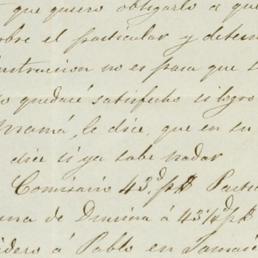 que quiero obligarlo a qu
obre el particular y determ
stracion no es para que
o quedaré satisfecho si logro
Mamá, le dice, que en su
dice si ya sabe nadar
Comisario 43
de á 43
á Pablo en Jamai